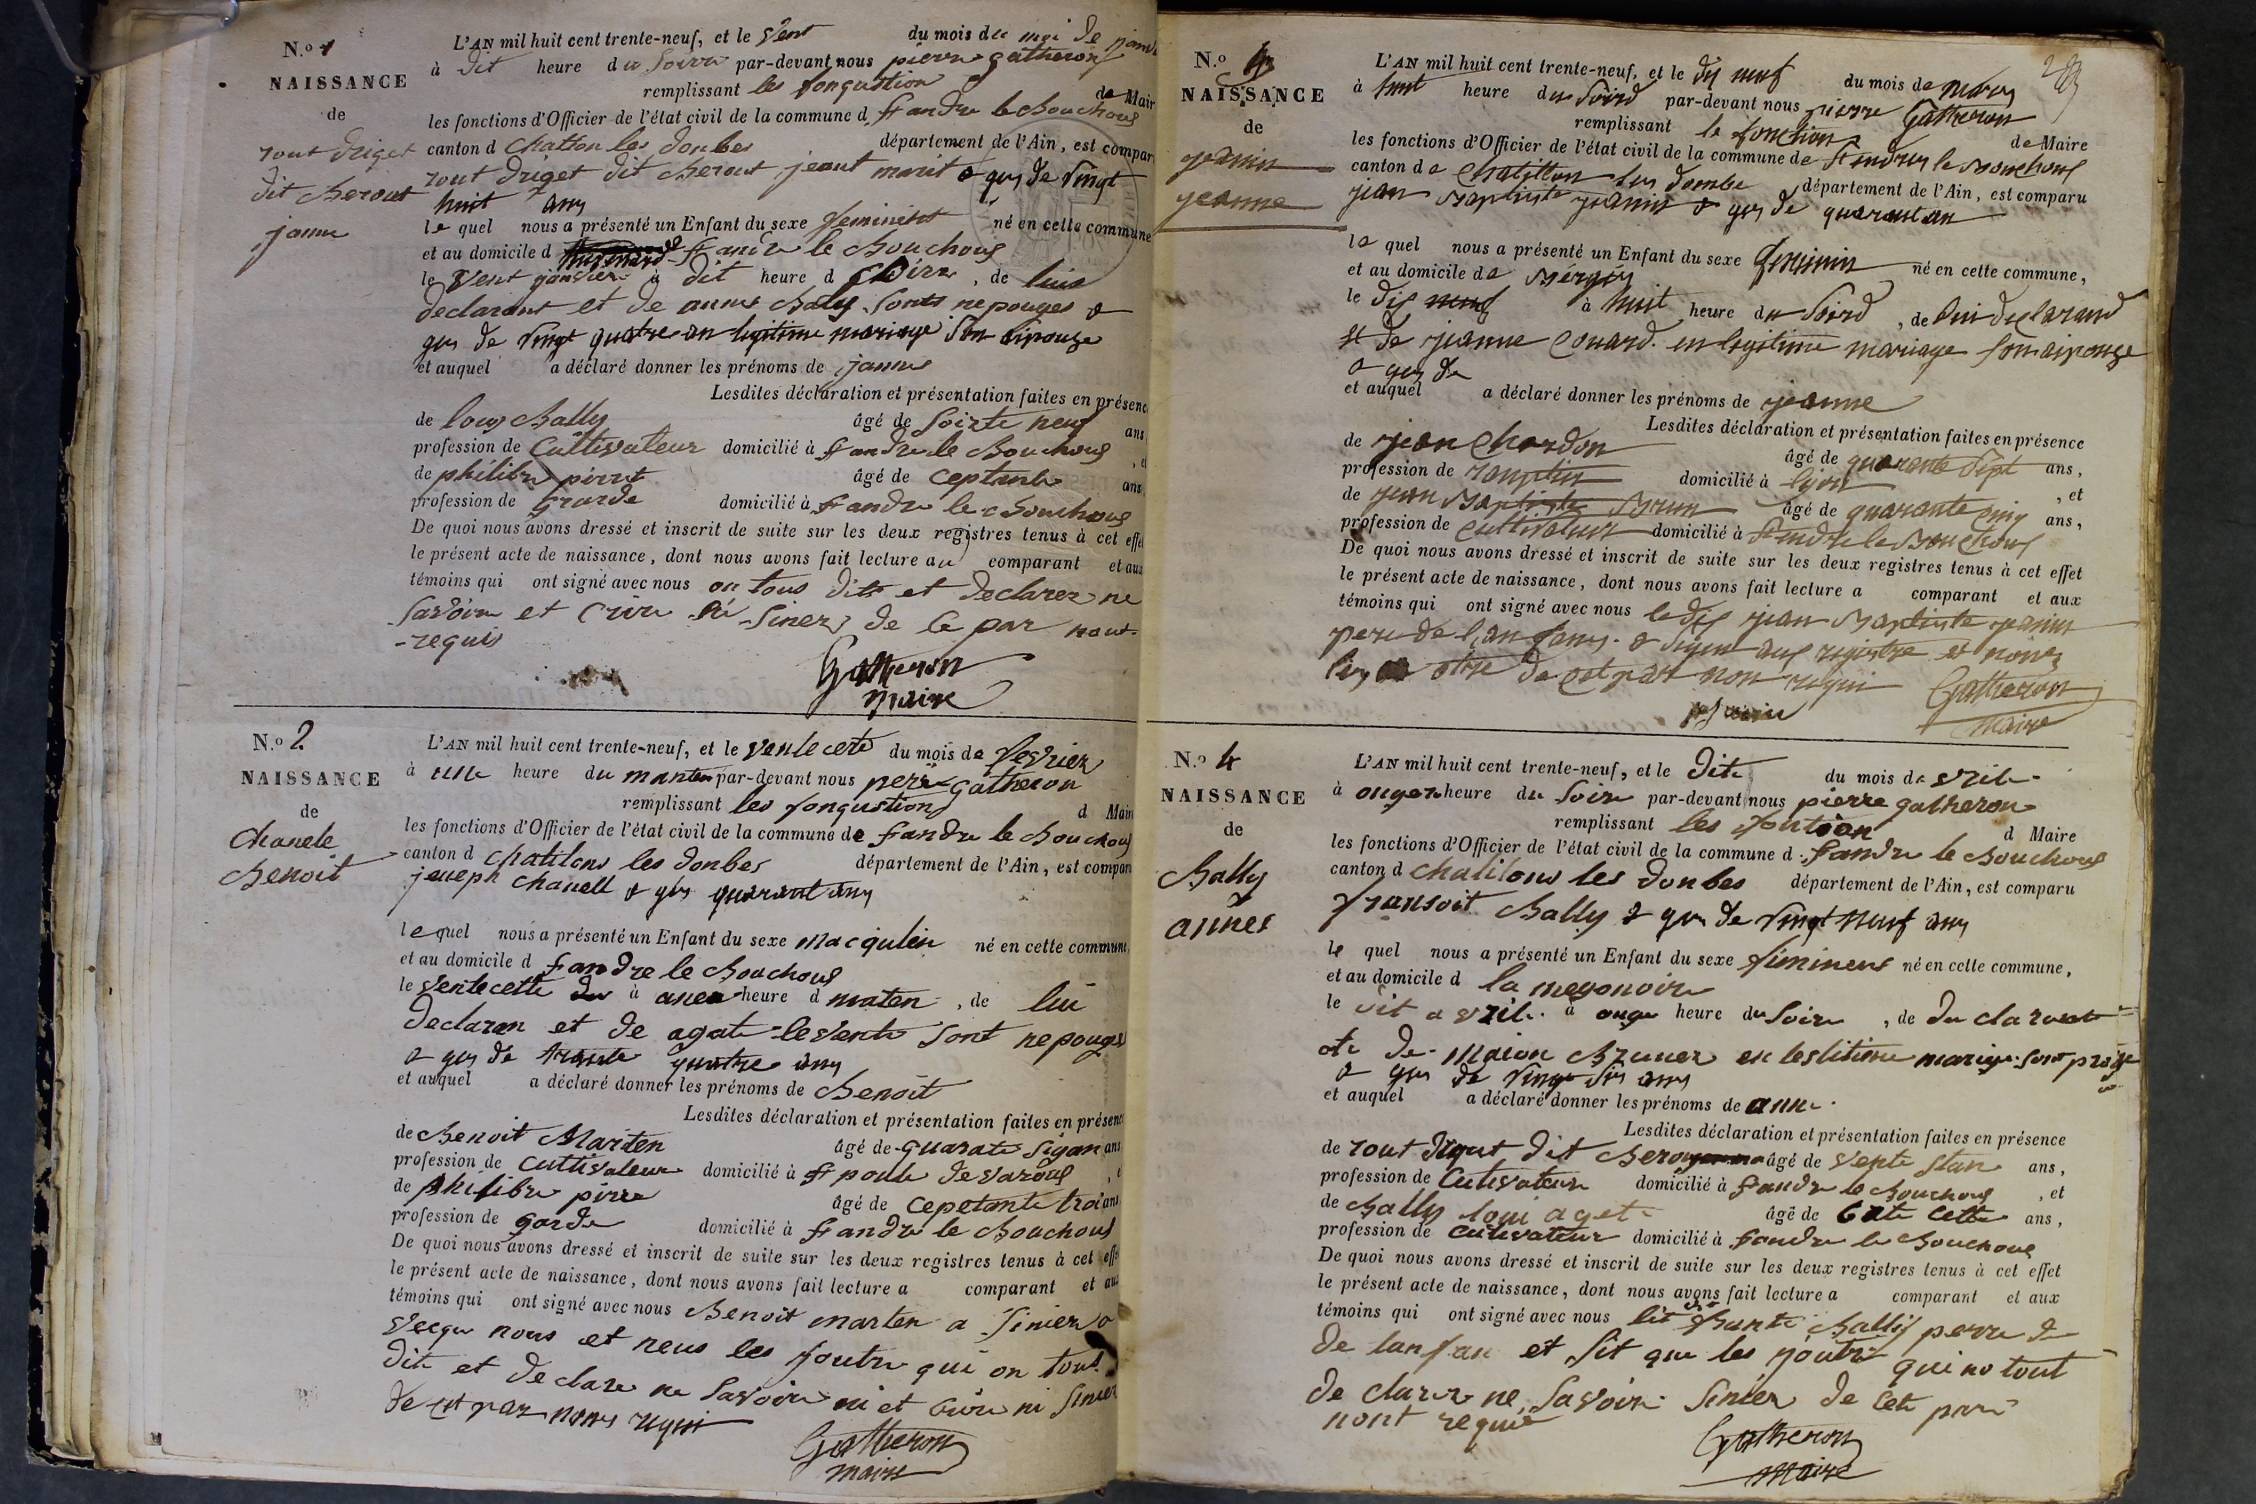 N.o 1
NAISSANCE
de
rout Driget
dit cherout
janne
L'AN mil huit cent trente-neuf, et le vent du mois du moi de janv
à dit heure du Soire par-devant nous pierre gatheron
remplissant les fongustion de Mair
les fonctions d'Officier de l'état civil de la commune d fandre le Bouchous
canton d chatton les donbes département de l'Ain, est compar
rout driget dit cherout jeant marit a ges de vingt
huit ans
le quel nous a présenté un Enfant du sexe feminent né en cette commune
et au domicile d fandre le Bouchous
le vent janvier à dit heure d Soire, de luis
declarant et de anne Baly sont nepouges a
ges de vingt quatre an legitime mariage son aipouge
et auquel a déclaré donner les prénoms de janne
Lesdites déclaration et présentation faites en présenc
de louis Bally âgé de Soizte neuf ans
profession de Cultivateur domicilié à fandre le Bouchous, et
de philibre pirret âgé de ceptente ans
profession de garde domicilié à fandre le Bouchous
De quoi nous avons dressé et inscrit de suite sur les deux registres tenus à cet effet
le présent acte de naissance, dont nous avons fait lecture au comparant et aux
témoins qui ont signé avec nous on tous dits et declarez ne
savoire et crire ni siner de ce par nout
-requis
Gatheron
maire
N.o 2
NAISSANCE
de
Chanele
Benoit
L'AN mil huit cent trente-neuf, et le vente cete du mois de fevrier
à une heure du manten par-devant nous perre gatheron
remplissant les fongustions d Maire
les fonctions d'Officier de l'état civil de la commune de fandre le Bouchous
canton d chatilons les donbes département de l'Ain, est compar
jeuseph chanell a ges quarant ans
le quel nous a présenté un Enfant du sexe macqulin né en cette commune
et au domicile d fandre le Bouchous
le ventecette à anea heure d maten, de lui
declaran et de agate levente sont nepouges
a ges de trante quatre ans
et auquel a déclaré donner les prénoms de Benoit
Lesdites déclaration et présentation faites en présenc
de Benoit Marten âgé de quarate sigan ans
profession de cultivateur domicilié à st poule de varous, e
de philibre pirre âgé de cepetante troi ans
profession de garde domicilié à fandre le Bouchous
De quoi nous avons dressé et inscrit de suite sur les deux registres tenus à cet effe
le présent acte de naissance, dont nous avons fait lecture a comparant et aux
témoins qui ont signé avec nous Benoit marten a sinier a
vecque nous et neus les foutre qui on tous
dite et declare ne savoire ni et crire ni sinier
de cet par nous requis
Gatheron
maire
N.o 3
NAISSANCE
de
janin
jeanne
L'AN mil huit cent trente-neuf, et le dis neuf du mois de mars
à huit heure du Soird par-devant nous pierre Gatheron
remplissant le fonction de Maire
les fonctions d'Officier de l'état civil de la commune de St andres le Bouchous
canton de chatillon les dombe département de l'Ain, est comparu
jean Baptiste janin a ges de quarant an
le quel nous a présenté un Enfant du sexe feminin né en cette commune,
et au domicile de Bergers
le dis neuf à huit heure du Soird, de lui declarand
et de jeanne Couard. en legitime mariage son aipouge
a ges de
et auquel a déclaré donner les prénoms de jeanne
Lesdites déclaration et présentation faites en présence
de jean Chardon âgé de quarante sept ans,
profession de domicilié à lyon, et
de jean Baptiste Brun âgé de quarante cinq ans,
profession de cultivateur domicilié à St andre le Bouchous
De quoi nous avons dressé et inscrit de suite sur les deux registres tenus à cet effet
le présent acte de naissance, dont nous avons fait lecture a comparant et aux
témoins qui ont signé avec nous le dis jean Baptiste janin
pere de l'an fans a signer aus registre et nonez
les otre de cet part non requi
janin
Gatheron
Maire
N.o 4
NAISSANCE
de
Bally
annes
L'AN mil huit cent trente-neuf, et le dite du mois de vril
à onger heure du Soire par-devant nous pierre gatheron
remplissant les fontion d Maire
les fonctions d'Officier de l'état civil de la commune d fandre le Bouchous
canton d chatilons les donbes département de l'Ain, est comparu
fransoit Bally a ges de vingt neuf ans
le quel nous a présenté un Enfant du sexe fiminens né en cette commune,
et au domicile d la meyonoire
le dit avril à onge heure du Soire, de du clarant
ete de maion Bruner en leslitime mariage sont
a ges de vingt sis ans
et auquel a déclaré donner les prénoms de anne
Lesdites déclaration et présentation faites en présence
de rout driget dit cherou âgé de vente ans,
profession de Cutivateur domicilié à fandre le Bouchous, et
de Bally loui aget âgé de cette ans,
profession de cutivateur domicilié à fandre le Bouchous
De quoi nous avons dressé et inscrit de suite sur les deux registres tenus à cet effet
le présent acte de naissance, dont nous avons fait lecture a comparant et aux
témoins qui ont signé avec nous Bally perre d
de lanfan et sit que les noutre qui no tout
de clarer ne savoire sinier de cete pare
nont requis
Gatheron
Maire